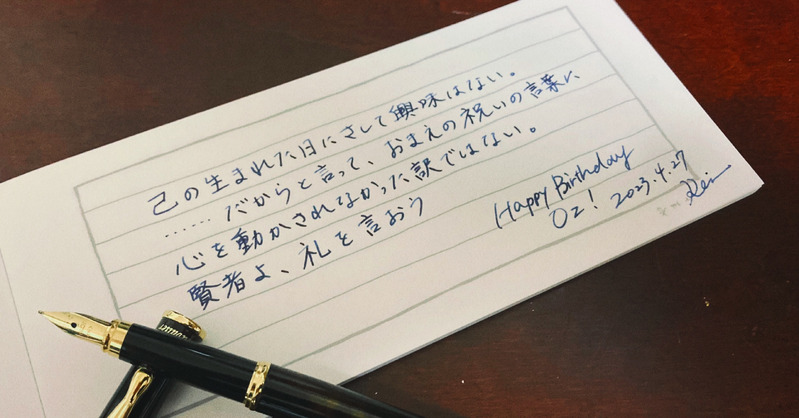 己の生まれた日にさして興味はない。
……だからと言って、おまえの祝いの言葉に
心を動かされなかった訳ではない。
賢者よ、礼を言おう
Happy Birthday
Oz! 2023.4.27
Rei